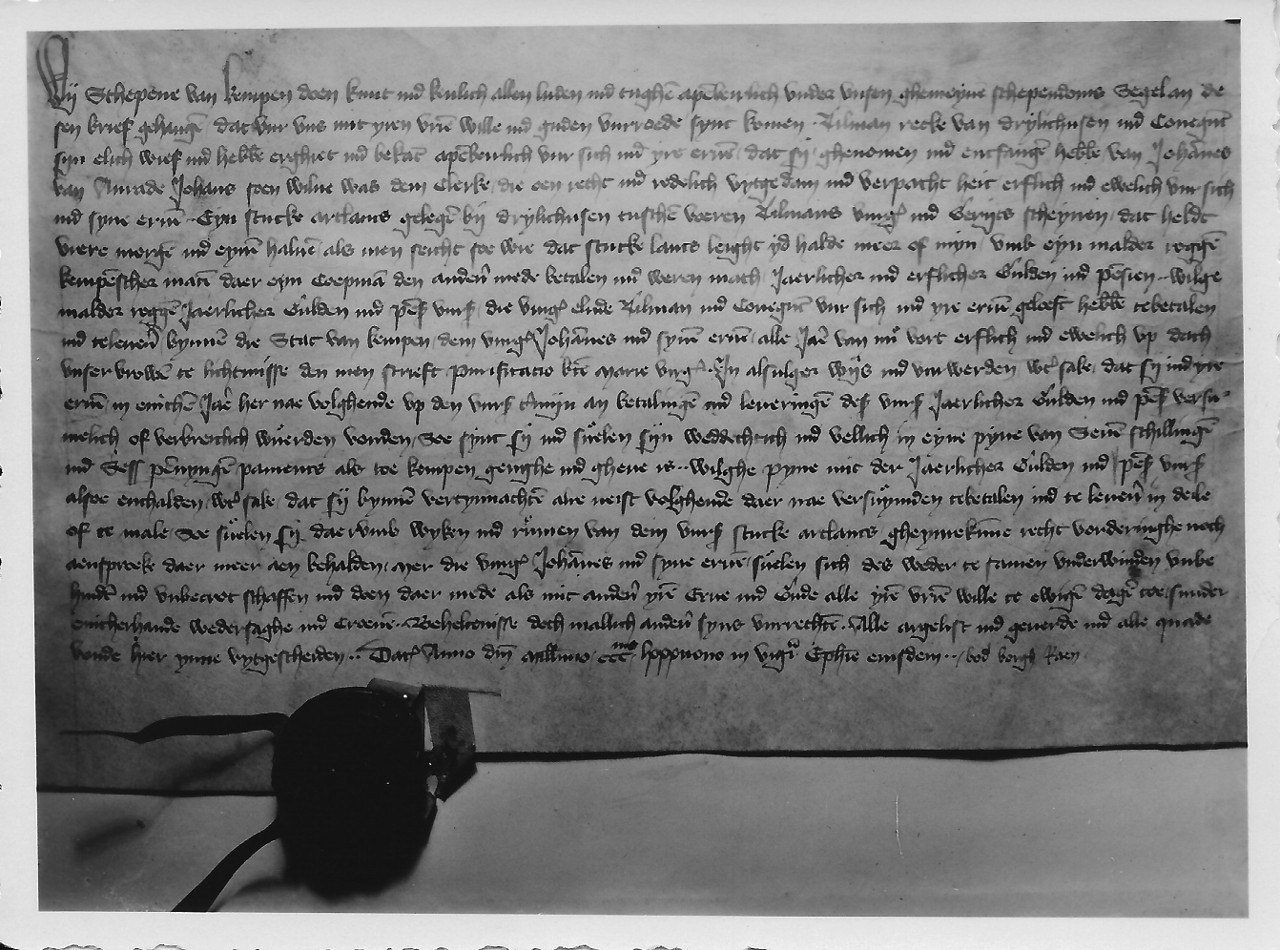 Wij Schepene van kempen doen kunt ind kenlich allen luden ind tughē apēberlich vnder vnsen ghemeyne schependoms Segel an de
sen brief gehangē dat vur vns mit yren vrīē wille ind guden vurroede synt komen Tilman recke van dryluhusen ind Conegūt
syn elich wief ind hebbē erghiet ind bekāt apēberlich vur sich ind yre eruē dat sy ghenomen ind entfangē hebbē van Johānes
van Anrade Johans soen wilne was dem Clerke die een recht ind redelich vytgedam ind verpacht heit erflich ind ewelich vur sich
ind syne eruē Eyn stucke artlants gelegē bij dryluhusen tusschē veeren Tilmans vurgͣ ind Gerijts scheynen dat heldt
viere morgē ind eynē haluē als men seicht soe wie dat stucke lants leight yd halde meer of myn vmb eyn malder roggē
kempēscher matē daer eyn Coepmā den anderē mede betalen ind weren mach Jaerlicher ind erflicher Gulden ind pēsien wilge
malder roggē Jaerlicher Gulden ind pēs vurs die vurgͣ elude Tilman ind Conegūt vur sich ind yre eruē geloeft hebbē te betalen
ind te leuerē bynnē die Stat van kempen dem vurgͣ Johānes ind synē eruē alle Jaer van nu vort erflich ind ewelich vp dach
vnser vrowē te lichtmisse den men scrieft purificatio btē Marie virgͣ In alsulger wijs ind vurwerden wer sake dat sy ind yre
eruē in enichē Jaer her nae volghende vp den vurs termijn an betalingē ind leueringē des vurs Jaerlicher Gulden ind pēs versu
melich of verbreclich wuerden vonden Soe synt sy ind suelen sijn weddechtich ind vellich in eyne pyne van Seuē schillingē
ind Sess pēnyngē paments als toe kempen genghe ind gheue is wilghe pyne mit der Jaerlicher Gulden ind pēs vurs
alsoe enthalden wer sake dat sij bynnē vertynnachtē alre neist volghende daer nae versuymden te betalen ind te leuerē in deile
of te male Soe suelen sy daer vmb wyken ind rumen van dem vurs stucke artlants gheynrekunne recht vorderinghe noch
aenspreeke daer meer aen behalden Mer die vurgͣ Johānes ind syne eruē suelen sich des weder te samen vnderwinden vnbe
hindert ind vnbecrot schaffen ind doen daer mede als mit anderē yrē Erue ind Gude alle yrē vrīē wille te ewigē dagē toe sunder
enicherhande wedersaghe ind Croenē Beheltenisse doch mallich anderē syns vurrechtē Alle argelist ind geuerde ind alle quade
vonde hier ynne vytgescheiden Datͣ Anno dm̄ millimo ccc lxxxnono in vigͣ Epħie eiusdem